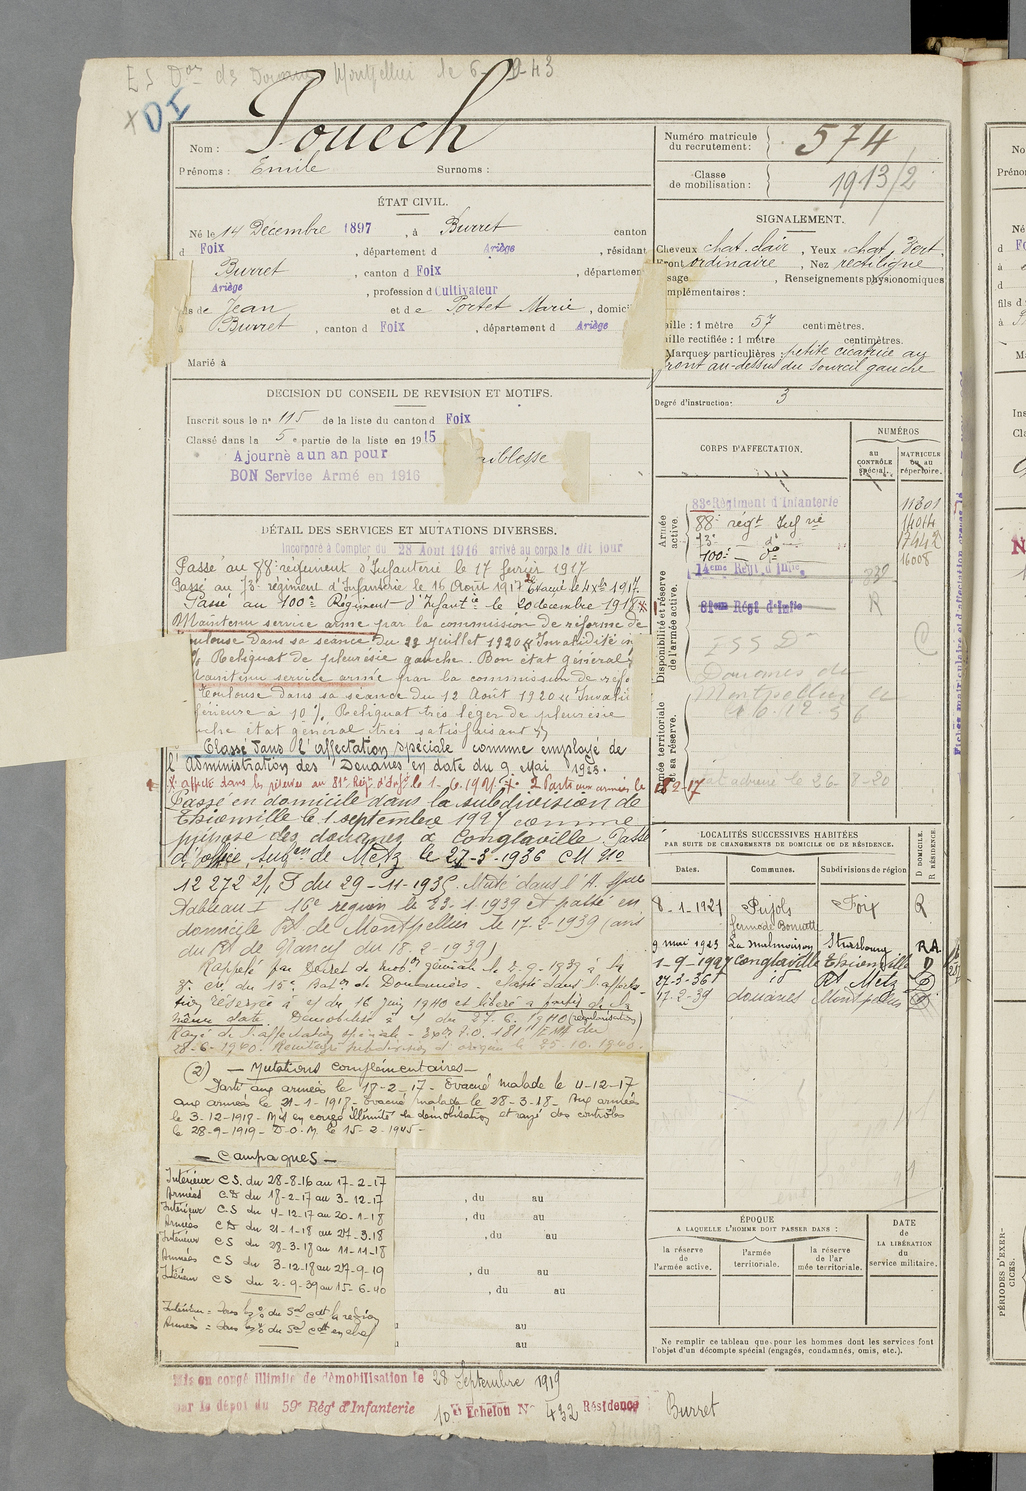 ES Don des Douanes Montpellier le 6-9-43
X DI
Nom : Jouech
Prénoms : Emile Surnoms :
Numéro matricule du recrutement : 574
Classe de mobilisation : 1913/2
ÉTAT CIVIL.
Né le 14 Décembre 1897, à Burret canton
d Foix, département d Ariège, résidant
Burret, canton d Foix, département
Ariège, profession d Cultivateur
ls de Jean et de Portet Marie, domici
à Burret, canton d Foix, département d Ariège
Marié à
SIGNALEMENT.
Cheveux chat. clair, Yeux chat. vert
Front ordinaire, Nez rectiligne
sage , Renseignements physionomiques
mplémentaires :
aille : 1 mètre 57 centimètres.
aille rectifiée : 1 mètre centimètres.
Marques particulières : petite cicatrice au
front au-dessus du sourcil gauche
Degré d'instruction : 3
DÉCISION DU CONSEIL DE REVISION ET MOTIFS.
Inscrit sous le n° 115 de la liste du canton d Foix
Classé dans la 5e partie de la liste en 1915
Ajourné a un an pour iblesse
BON Service Armé en 1916
DÉTAIL DES SERVICES ET MUTATIONS DIVERSES.
Incorporé à Compter du 28 Aout 1916 arrivé au corps le dit jour
Passé au 88e régiment d'Infanterie le 17 février 1917
Passé au 73e régiment d'Infanterie le 16 Août 1917 Evacué le 4 Xbre 1917.
Passé au 100e Régiment d'Infanterie le 20 decembre 1918
Maintenu service armé par la commission de réforme de
Toulouse dans sa séance du 22 juillet 1920 "Invalidité in
% Reliquat de pleurésie gauche. Bon état général"
Maintenu service armé par la commission de réfo
Toulouse dans sa séance du 12 Août 1920 "Invali
férieure à 10 % Reliquat très léger de pleurésie
uche état général très satisfaisant"
Classé dans l'affectation spéciale comme employé de
l'Administration des Douanes en date du 9 Mai 1923.
X affecté dans la réserve au 81e Régt d'Inf. le 1-6-1921 X 2 Parti aux armées le 18-2-17
Passé en domicile dans la subdivision de
Thionville le 1 septembre 1927 comme
préposé des douanes à Longlaville. Passé
d'office, subon de Metz le 27-3-1936 CM No
12 272 2/1 D du 29-11-1935. Muté dans l'A. Spéc
tableau I 16e region le 22-1-1939 et passé en
domicile Rt de Montpellier le 17-2-1939 (avis
du Rt de Nancy du 18-2-1939)
Rappelé par Décret de Mobon générale le 2-9-1939 à la
3e Cie du 15e Baton de Douaniers. Placé dans l'affecta-
tion réservée à c/ du 16 juin 1940 et libéré à partir de la
même date. Démobilisé à c/ du 27.6.1940 (régularisation)
Rayé de l'affectation spéciale
28-6-1940. Réintègre subdivision d'origine le 25-10-1940.
(2) — Mutations Complémentaires —
Parti aux armées le 17-2-17 - Evacué malade le 4-12-17
aux armées le 21-1-1918 - Evacué malade le 28-3-18 - Aux armées
le 3-12-1918 - Mis en congé illimité de démobilisation et rayé des contrôles
le 28-9-1919 - D.O.M. le 15-2-1945 -
— Campagnes —
Intérieur CS. du 28-8-16 au 17-2-17
Armées C.D du 18-2-17 au 3-12-17
Intérieur C.S du 4-12-17 au 20-1-18
Armées CD du 21-1-18 au 27-3-18
Intérieur CS du 28-3-18 au 11-11-18
Armées CS du 3-12-18 au 27-9-19
Intérieur CS du 2-9-39 au 15-6-40
Intérieur = dans la Z. du Gal Cdt la région
Armées = dans la Z. du Gal Cdt en chef
, du au
, du au
, du au
, du au
, du au
au
au
CORPS D'AFFECTATION.
NUMÉROS
au CONTRÔLE spécial.
MATRICULE ou au répertoire.
Armée active.
83e Régiment d'Infanterie 11301
88e régt Infrie 14014
73e do 7442
100e do 16008
Disponibilité et réserve de l'armée active.
14eme Régt d'Infie
81eme Régt d'Infie R
ESS Don
Douanes de
Montpellier le
16.12.36
Armée territoriale et sa réserve.
LOCALITÉS SUCCESSIVES HABITÉES
PAR SUITE DE CHANGEMENTS DE DOMICILE OU DE RÉSIDENCE.
Dates. Communes. Subdivisions de région D DOMICILE. R RÉSIDENCE.
8-1-1921 Pujols Foix R
9 mai 1923 La Malmaison Strasbourg RA
1-9-1927 Longlaville Thionville D
27-3-36 id Rt Metz D
17-2-39 douanes Montpellier D
ÉPOQUE
A LAQUELLE L'HOMME DOIT PASSER DANS :
la réserve de l'armée active.
l'armée territoriale.
la réserve de l'armée territoriale.
DATE DE LA LIBÉRATION du service militaire.
Ne remplir ce tableau que pour les hommes dont les services font
l'objet d'un décompte spécial (engagés, condamnés, omis, etc.).
Mis en congé illimité de démobilisation le 28 Septembre 1919
par le dépôt du 59e Régt d'Infanterie 10e Echelon N° 432 Résidence Burret
PÉRIODES D'EXERCICES.